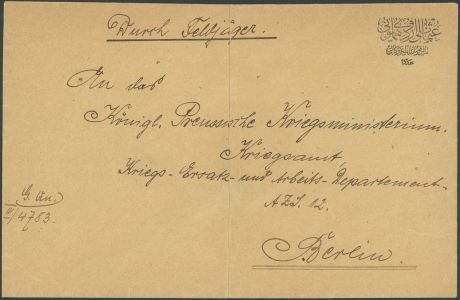 Durch Feldjäger.
An das
Königl. Preussische Kriegsministerium.
Kriegsamt,
Kriegs-Ersatz- und Arbeits-Departement.
AZS. 12.
G. An.
4783.
Berlin.